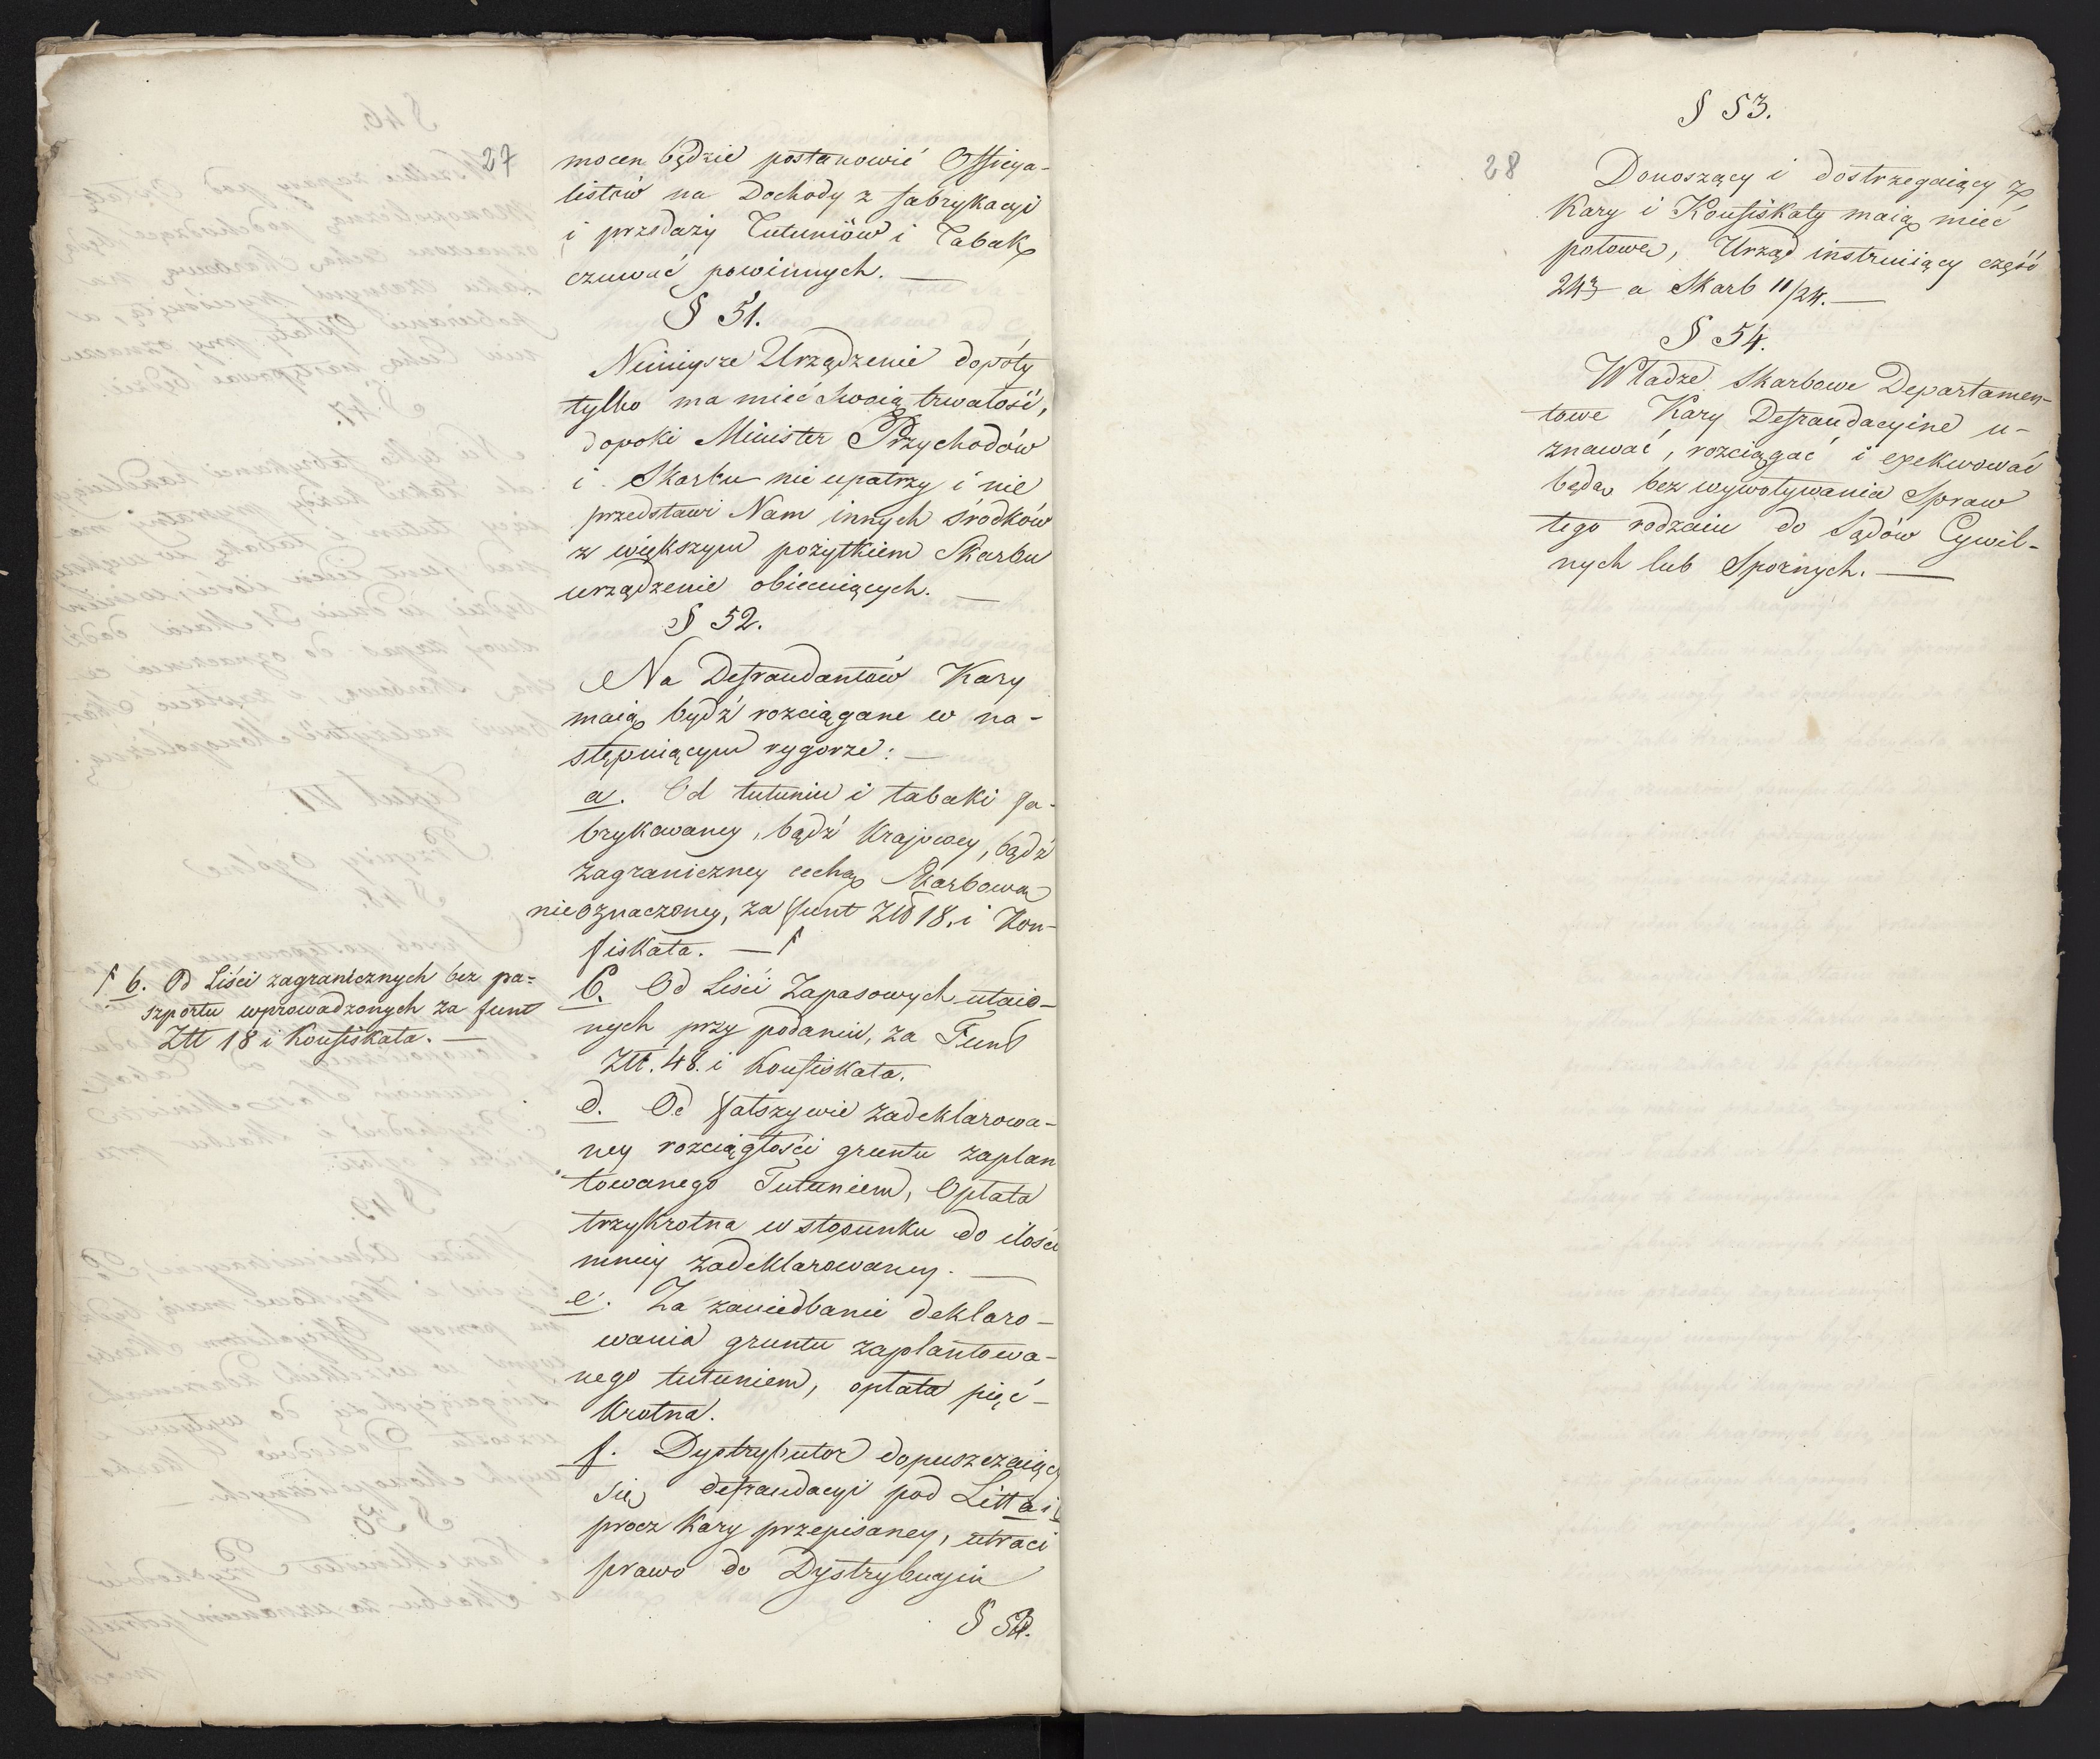 27
mocen będzie postanowić Officya-
listów na Dochody z fabrykacyi
i przedaży Tutuniów i Tabak
czuwać powinnych. —
§ 51.
Ninieysze Urządzenie dopóty
tylko ma mieć swoią trwałość,
dopoki Minister Przychodów
i Skarbu nie upatrzy i nie
przedstawi Nam innych środków
z większym pożytkiem Skarbu
urządzenie obiecuiących. —
§ 52.
Na Defraudantów Kary
maią bydź rozciągane w na-
stępuiącym rygorze: —
a. Od tutuniu i tabaki fa-
brykowaney, bądź Krajowey, bądź
zagraniczney cechą Skarbową
nieoznaczoney, za funt Złł 18. i Kon-
fiskata. — f
f b. Od Liści zagranicznych bez pa-
szportu wprowadzonych za funt
Złł 18 i Konfiskata. —
C. Od Liści Zapasowych utaio-
nych przy podaniu, za Funt
Złł. 48. i Konfiskata.
d. Od fałszywie zadeklarowa-
ney rozciągłości gruntu zaplan
towanego Tutuniem, Opłata
trzykrotna w stosunku do ilości
mniey zadeklarowaney. —
e. Za zaniedbanie deklaro-
wania gruntu zaplantowa-
nego tutuniem, opłata pięć-
krotna.
f. Dystrybutor dopuszczaiący
się defraudacyi pod Litt a i
procz Kary przepisaney, utraci
prawo do Dystrybucyi
§ 53.
28
§ 53.
Donoszący i dostrzegaiący z
Kary i Konfiskaty maią mieć
połowę, Urząd instruiący część
24 a Skarb 11/24. —
§ 54.
Władze Skarbowe Departamen-
towe Kary Defraudacyine u-
znawać, rozciągać i exekwować
będą bez wywoływania Spraw
tego rodzaiu do Sądów Cywil-
nych lub Spornych. —